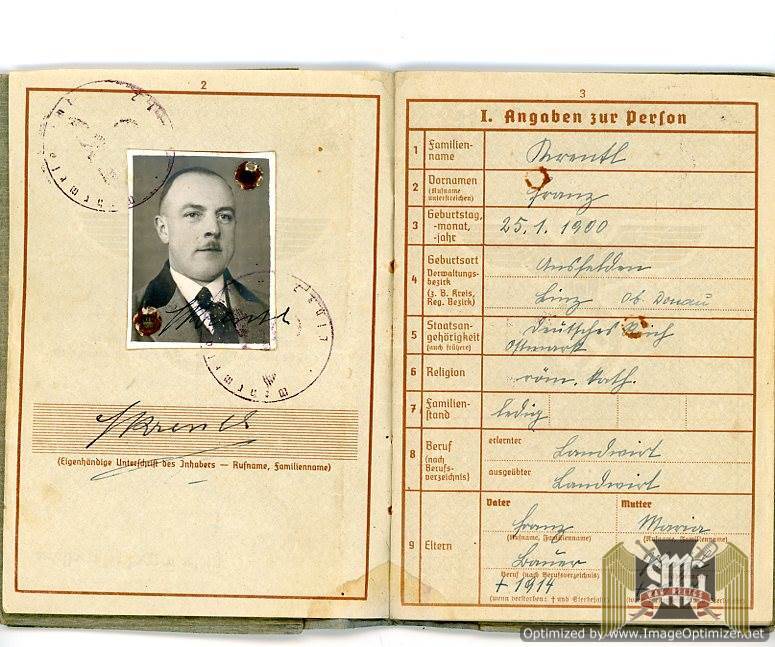 2
3
I. Angaben zur Person
1 Familien-
name
2 Vornamen
(Rufname
unterstreichen)
Franz
3 Geburtstag,
-monat,
-jahr
25. 1. 1900
4 Geburtsort
Verwaltungs-
bezirk
(z. B. Kreis,
Reg. Bezirk)
Ansfelden
Linz Ob. Donau
5 Staatsan-
gehörigkeit
(auch frühere)
Deutsches Reich
Ostmark
6 Religion
röm. kath.
7 Familien-
stand
ledig
8 Beruf
(nach
Berufs-
verzeichnis)
erlernter
Landwirt
ausgeübter
Landwirt
9 Eltern
Vater
Franz
(Rufname, Familienname)
Bauer
Beruf (nach Berufsverzeichnis)
+ 1914
(wenn verstorben: † und Sterbejahr)
Mutter
Maria
(Rufname, Familienname)
(Eigenhändige Unterschrift des Inhabers — Rufname, Familienname)
SMG
WAR RELICS
Optimized by www.ImageOptimizer.net